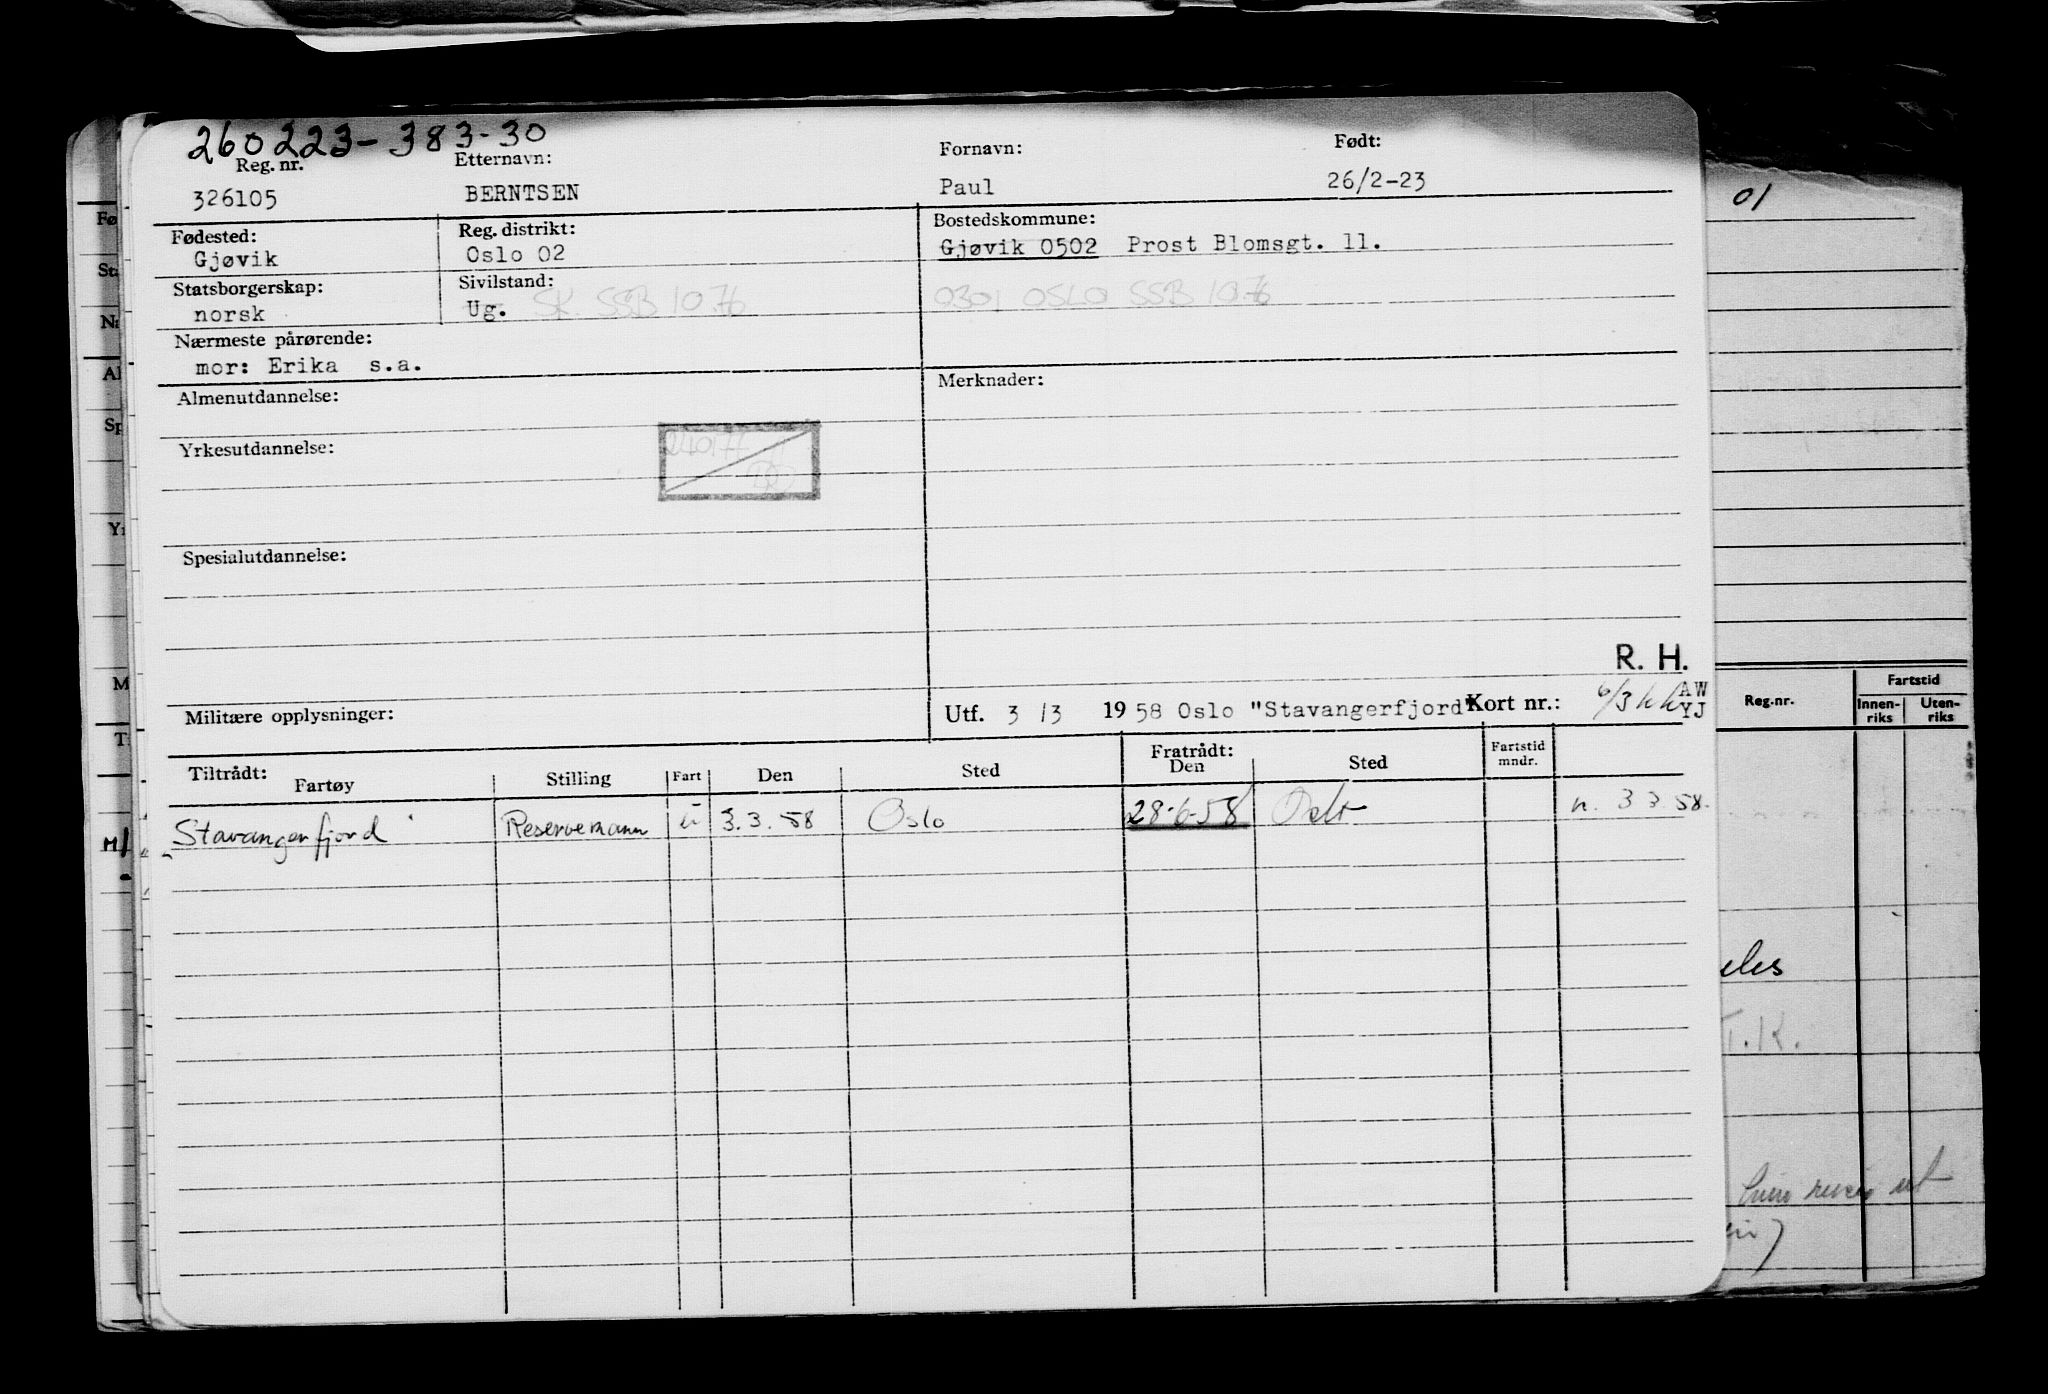 260223-383-30
Reg. nr. Etternavn: Fornavn: Født:
326105 BERNTSEN Paul 26/2-23
Fødested: Reg. distrikt: Bostedskommune:
Gjøvik Oslo 02 Gjøvik 0502 Prost Blomsgt. 11.
Statsborgerskap: Sivilstand:
norsk Ug. SK. SSB 10.76 0301 OSLO SSB 10.76
Nærmeste pårørende:
mor: Erika s.a.
Almenutdannelse: Merknader:
Yrkesutdannelse:
Spesialutdannelse:
R. H.
Militære opplysninger: Utf. 3 /3 1958 Oslo "Stavangerfjord" Kort nr.: 6/3 AW
YJ
Tiltrådt: Fratrådt:
Fartøy Stilling Fart Den Sted Den Sted Fartstid
mndr.
"Stavangerfjord" Reservemann u 3.3.58 Oslo 28-6-58 n. 3 3 58.
01
Reg.nr. Fartstid
Innen-
riks Uten-
riks
T.K.